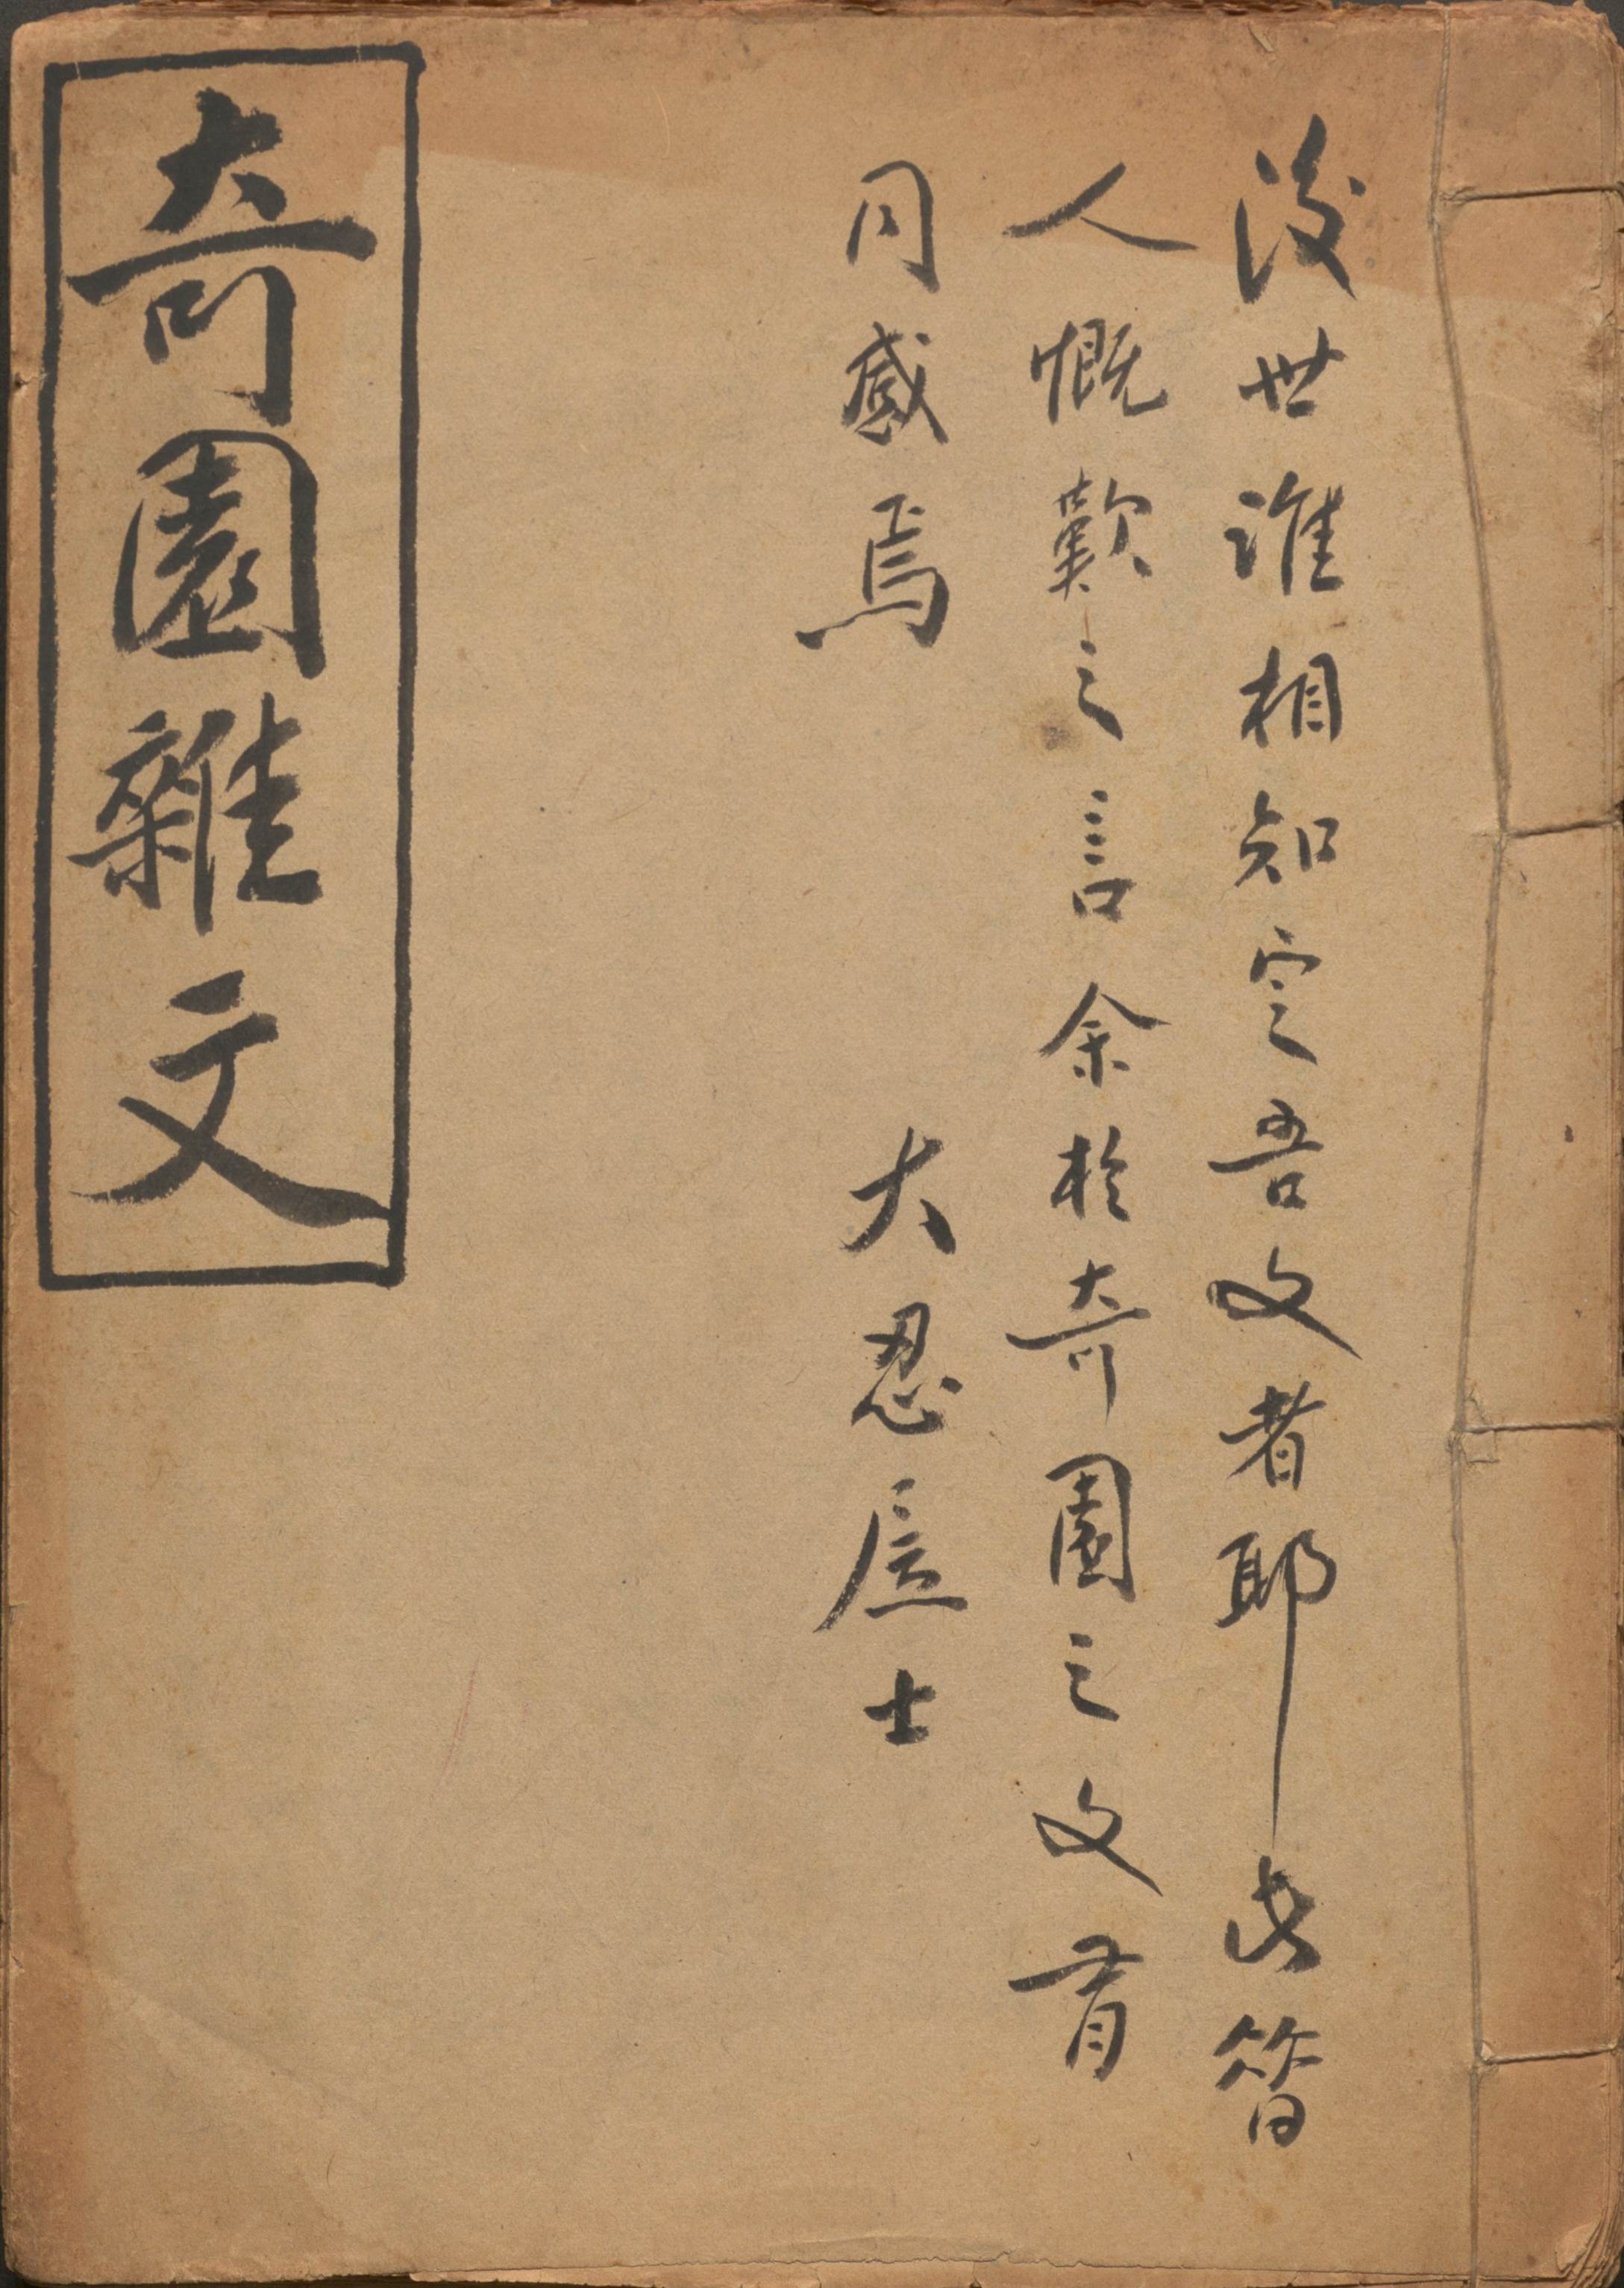 後世誰相知定吾文者耶此昔
人慨歎之言余於奇園之文有
同感焉
大忍居士
奇園雜文